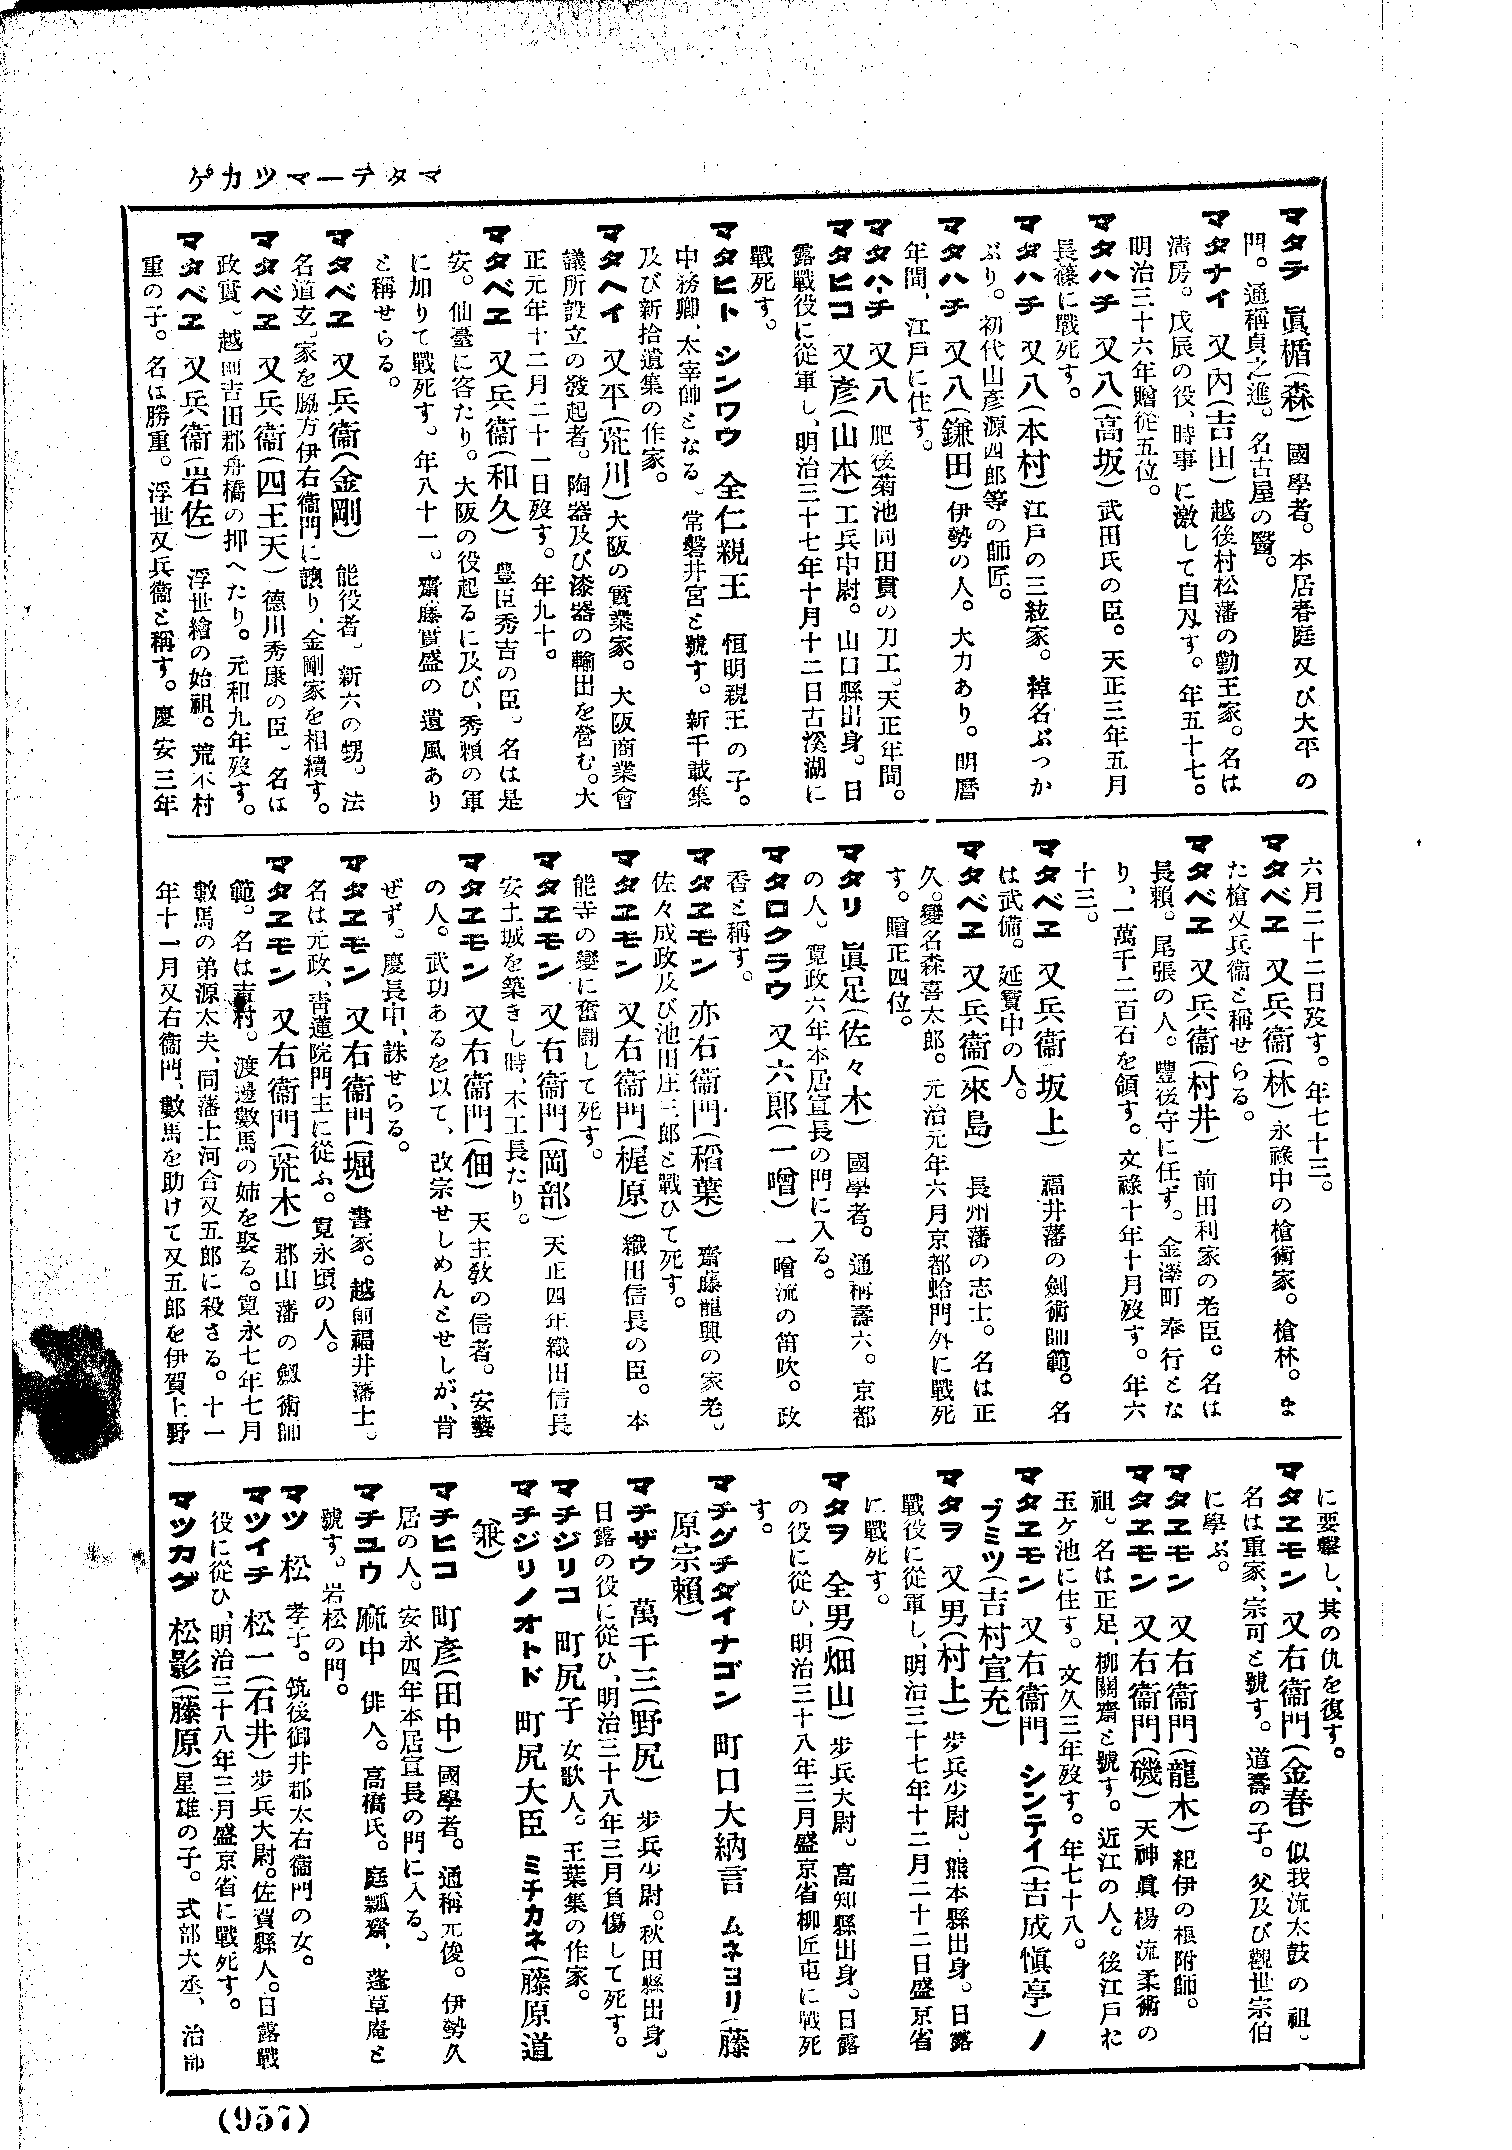 マタテーマツカゲ
マタテ 眞楯(森) 國學者。本居春庭及び大平の
門。通稱貞之進。名古屋の醫。
マタナイ 又內(吉田) 越後村松藩の勤王家。名は
淸房。戊辰の役、時事に激して自刄す。年五十七。
明治三十六年贈從五位。
マタハチ 又八(高坂) 武田氏の臣。天正三年五月
長篠に戰死す。
マタハチ 又八(本村) 江戶の三絃家。綽名ぶつか
ぶり。初代山彥源四郞等の師匠。
マタハチ 又八(鎌田) 伊勢の人。大力あり。明曆
年間、江戶に住す。
マタハチ 又八 肥後菊池同田貫の刀工。天正年間。
マタヒコ 又彥(山本) 工兵中尉。山口縣出身。日
露戰役に從軍し、明治三十七年十月十二日古溪湖に
戰死す。
マタヒト シンワウ 全仁親王 恒明親王の子。
中務卿、太宰帥となる。常磐井宮と號す。新千載集
及び新拾遺集の作家。
マタヘイ 又平(荒川) 大阪の實業家。大阪商業會
議所設立の發起者。陶器及び漆器の輸出を營む。大
正元年十二月二十一日歿す。年九十。
マタベヱ 又兵衞(和久) 豐臣秀吉の臣。名は是
安。仙臺に客たり。大阪の役起るに及び、秀賴の軍
に加りて戰死す。年八十一。齋藤實盛の遺風あり
と稱せらる。
マタベヱ 又兵衞(金剛) 能役者。新六の甥。法
名道玄。家を脇方伊右衞門に讓り、金剛家を相續す。
マタベヱ 又兵衞(四王天) 德川秀康の臣。名は
政實。越前吉田郡舟橋の押へたり。元和九年歿す。
マタベヱ 又兵衞(岩佐) 浮世繪の始祖。荒木村
重の子。名は勝重。浮世又兵衞と稱す。慶安三年
六月二十二日歿す。年七十三。
マタベヱ 又兵衞(林) 永祿中の槍術家。槍林。ま
た槍又兵衞と稱せらる。
マタベヱ 又兵衞(村井) 前田利家の老臣。名は
長賴。尾張の人。豐後守に任ず。金澤町奉行とな
り、一萬千二百石を領す。文祿十年十月歿す。年六
十三。
マタベヱ 又兵衞(坂上) 福井藩の劍術師範。名
は武備。延寶中の人。
マタベヱ 又兵衞(來島) 長州藩の志士。名は正
久。變名森喜太郞。元治元年六月京都蛤門外に戰死
す。贈正四位。
マタリ 眞足(佐々木) 國學者。通稱壽六。京都
の人。寬政六年本居宣長の門に入る。
マタロクラウ 又六郞(一噌) 一噌流の笛吹。政
香と稱す。
マタヱモン 亦右衞門(稻葉) 齋藤龍興の家老。
佐々成政及び池田庄三郞と戰ひて死す。
マタヱモン 又右衞門(梶原) 織田信長の臣。本
能寺の變に奮鬪して死す。
マタヱモン 又右衞門(岡部) 天正四年織田信長
安土城を築きし時、木工長たり。
マタヱモン 又右衞門(佃) 天主敎の信者。安藝
の人。武功あるを以て、改宗せしめんとせしが、肯
ぜず。慶長中、誅せらる。
マタヱモン 又右衞門(堀) 書家。越前福井藩士。
名は元政、靑蓮院門主に從ふ。寬永頃の人。
マタヱモン 又右衞門(荒木) 郡山藩の劔術師
範。名は吉村。渡邊數馬の姉を娶る。寬永七年七月
數馬の弟源太夫、同藩士河合又五郞に殺さる。十一
年十一月又右衞門、數馬を助けて又五郞を伊賀上野
に要擊し、其の仇を復す。
マタヱモン 又右衞門(金春) 似我流太鼓の祖。
名は重家、宗可と號す。道壽の子。父及び觀世宗伯
に學ぶ。
マタヱモン 又右衞門(龍木) 紀伊の根附師。
マタヱモン 又右衞門(磯) 天神眞楊流柔術の
祖。名は正足、柳關齋と號す。近江の人。後江戶お
玉ケ池に住す。文久三年歿す。年七十八。
マタヱモン 又右衞門 シンテイ(吉成愼亭)ノ
ブミツ(吉村宣充)
マタヲ 又男(村上) 步兵少尉。熊本縣出身。日露
戰役に從軍し、明治三十七年十二月二十二日盛京省
に戰死す。
マタヲ 全男(畑山) 步兵大尉。高知縣出身。日露
の役に從ひ、明治三十八年三月盛京省柳匠屯に戰死
す。
マチグチダイナゴン 町口大納言 ムネヨリ(藤
原宗賴)
マチザウ 萬千三(野尻) 步兵少尉。秋田縣出身。
日露の役に從ひ、明治三十八年三月負傷して死す。
マチジリコ 町尻子 女歌人。玉葉集の作家。
マチジリノオトド 町尻大臣 ミチカネ(藤原道
兼)
マチヒコ 町彥(田中) 國學者。通稱元俊。伊勢久
居の人。安永四年本居宣長の門に入る。
マチユウ 麻中 俳人。高橋氏。庭瓢齋、蓬草庵と
號す。岩松の門。
マツ 松 孝子。筑後御井郡太右衞門の女。
マツイチ 松一(石井) 步兵大尉。佐賀縣人。日露戰
役に從ひ、明治三十八年三月盛京省に戰死す。
マツカゲ 松影(藤原) 星雄の子。式部大丞、治部
(957)